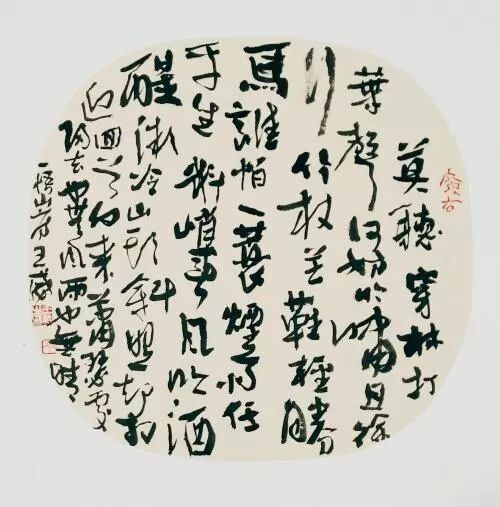 莫聽穿林打
葉聲何妨吟嘯且徐
行竹杖芒鞋輕勝
馬誰怕一蓑煙雨任
平生料峭春風吹酒
醒微冷山頭斜照却相
迎回首向來蕭瑟處
歸去也無風雨也無晴
一悟山房王